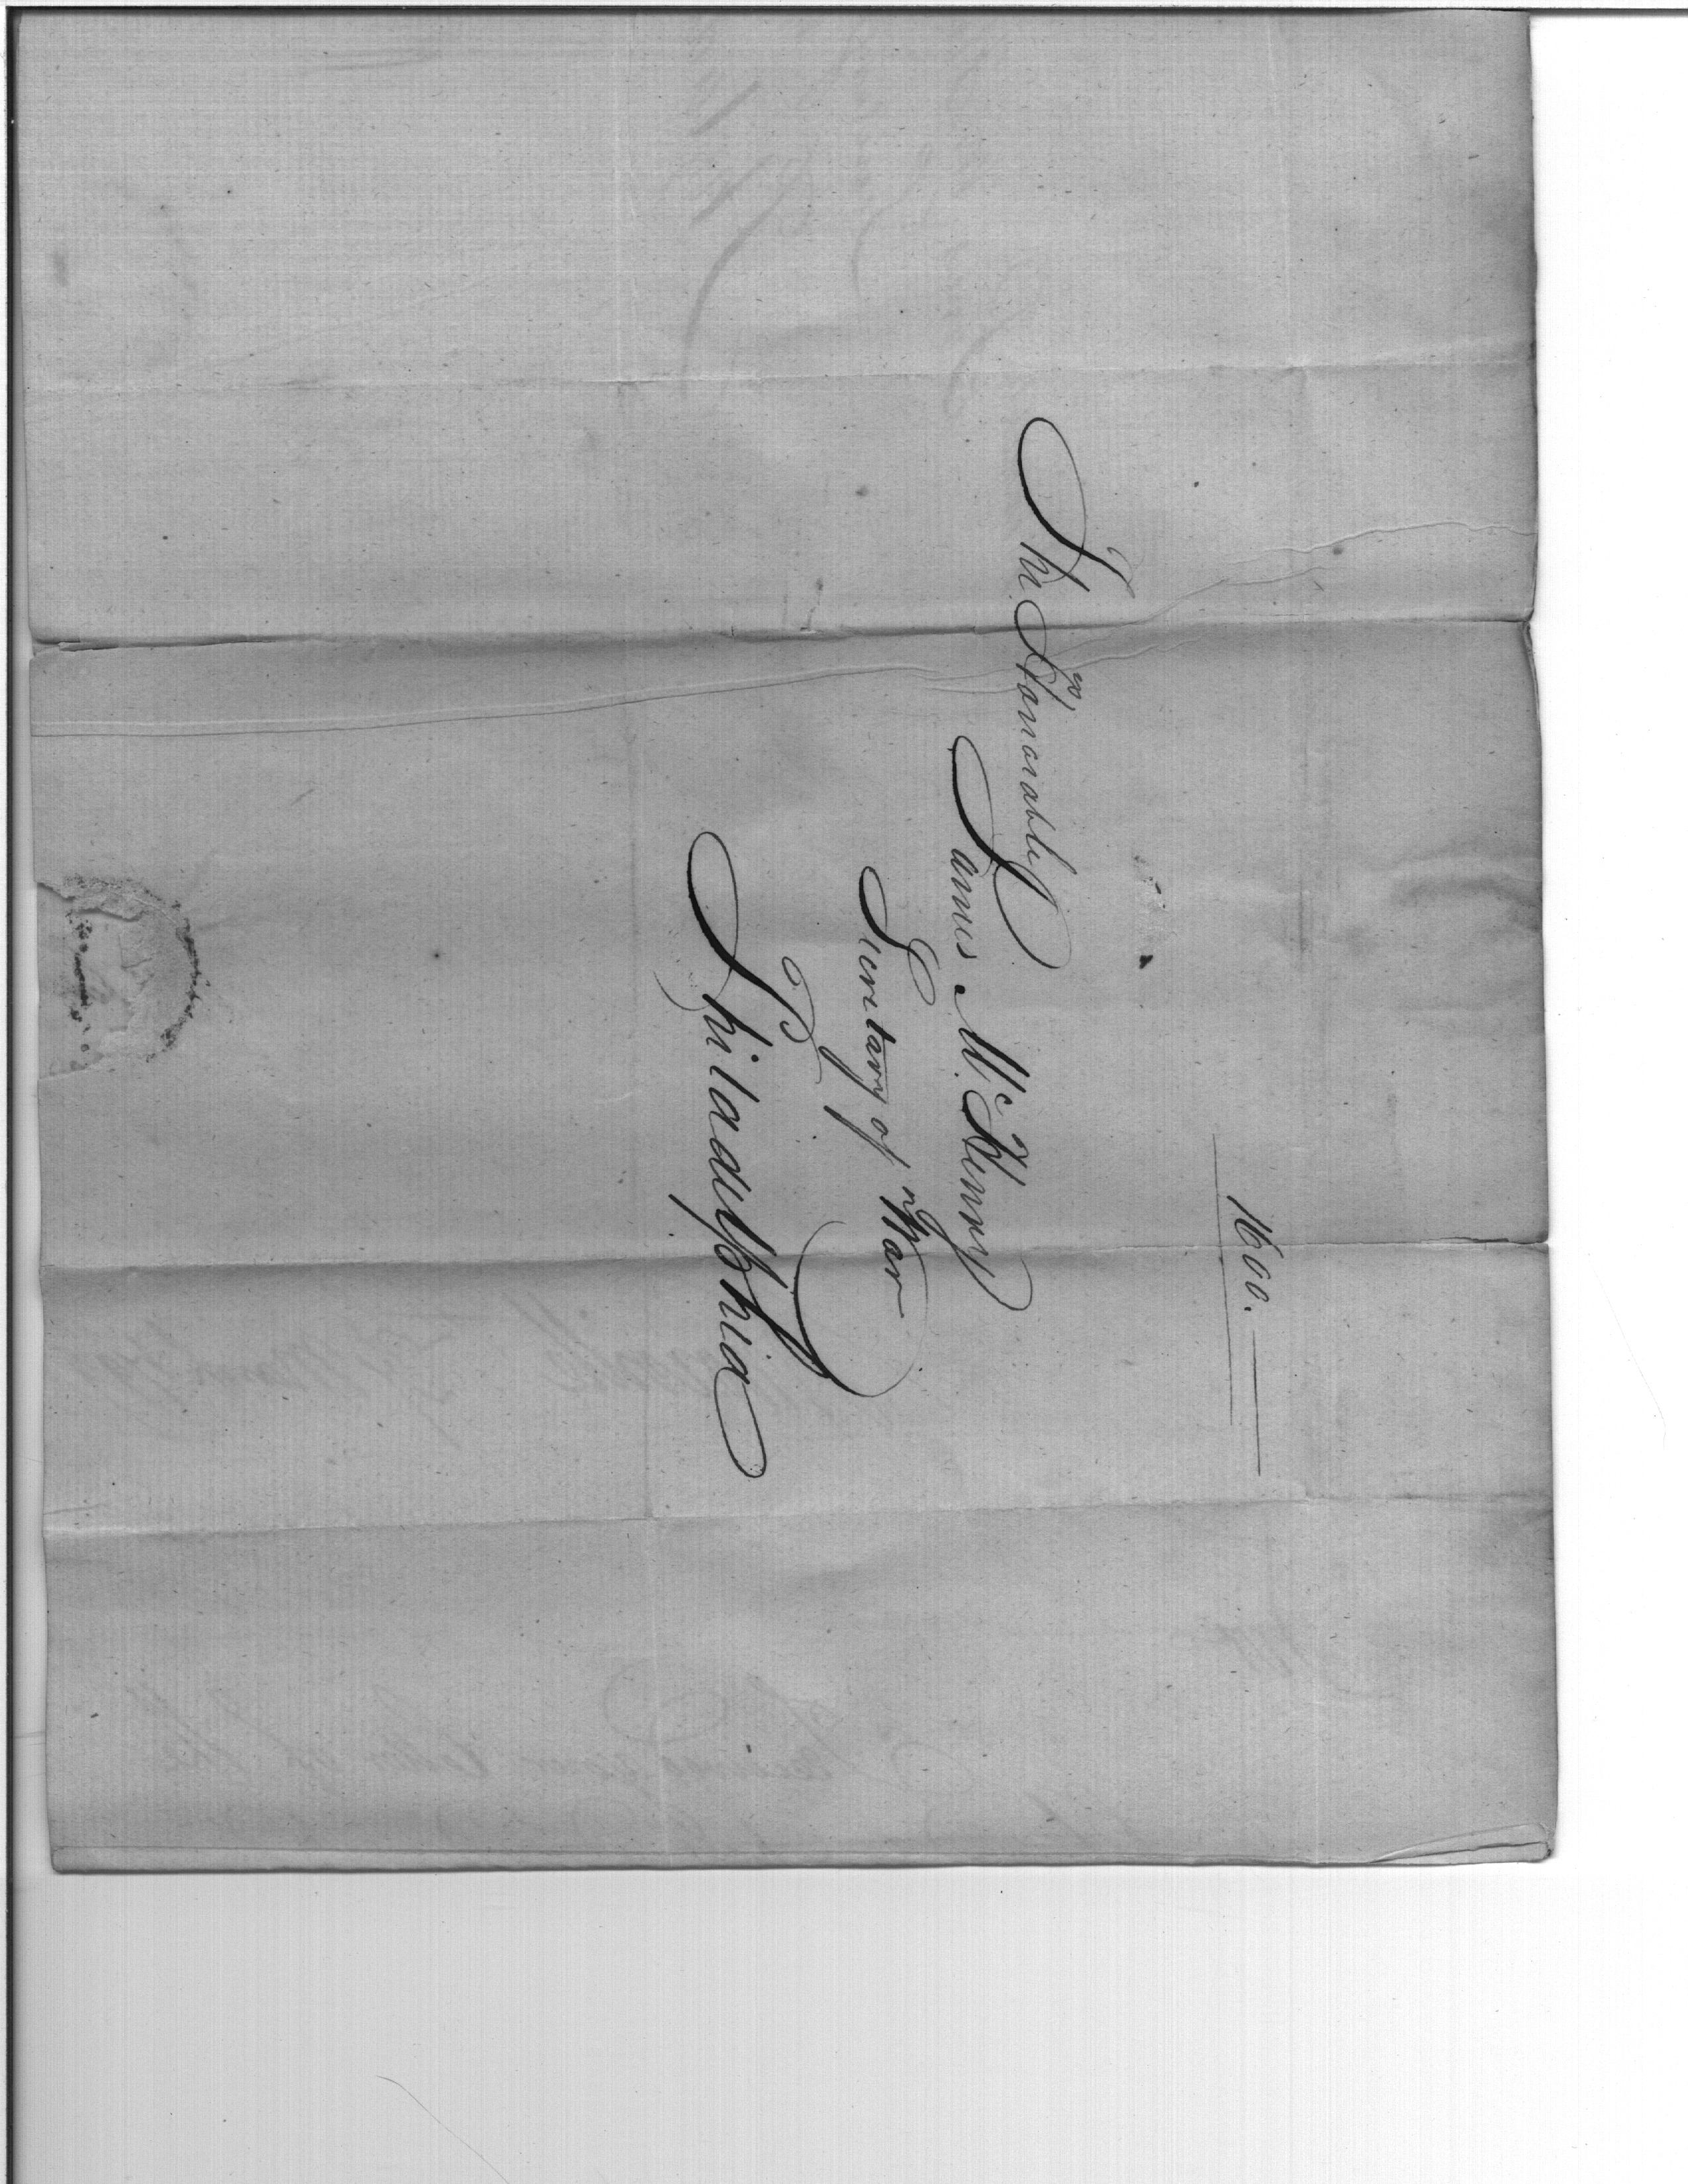 1600.
The Honorable
James McHenry
Secretary of War
Philadelphia